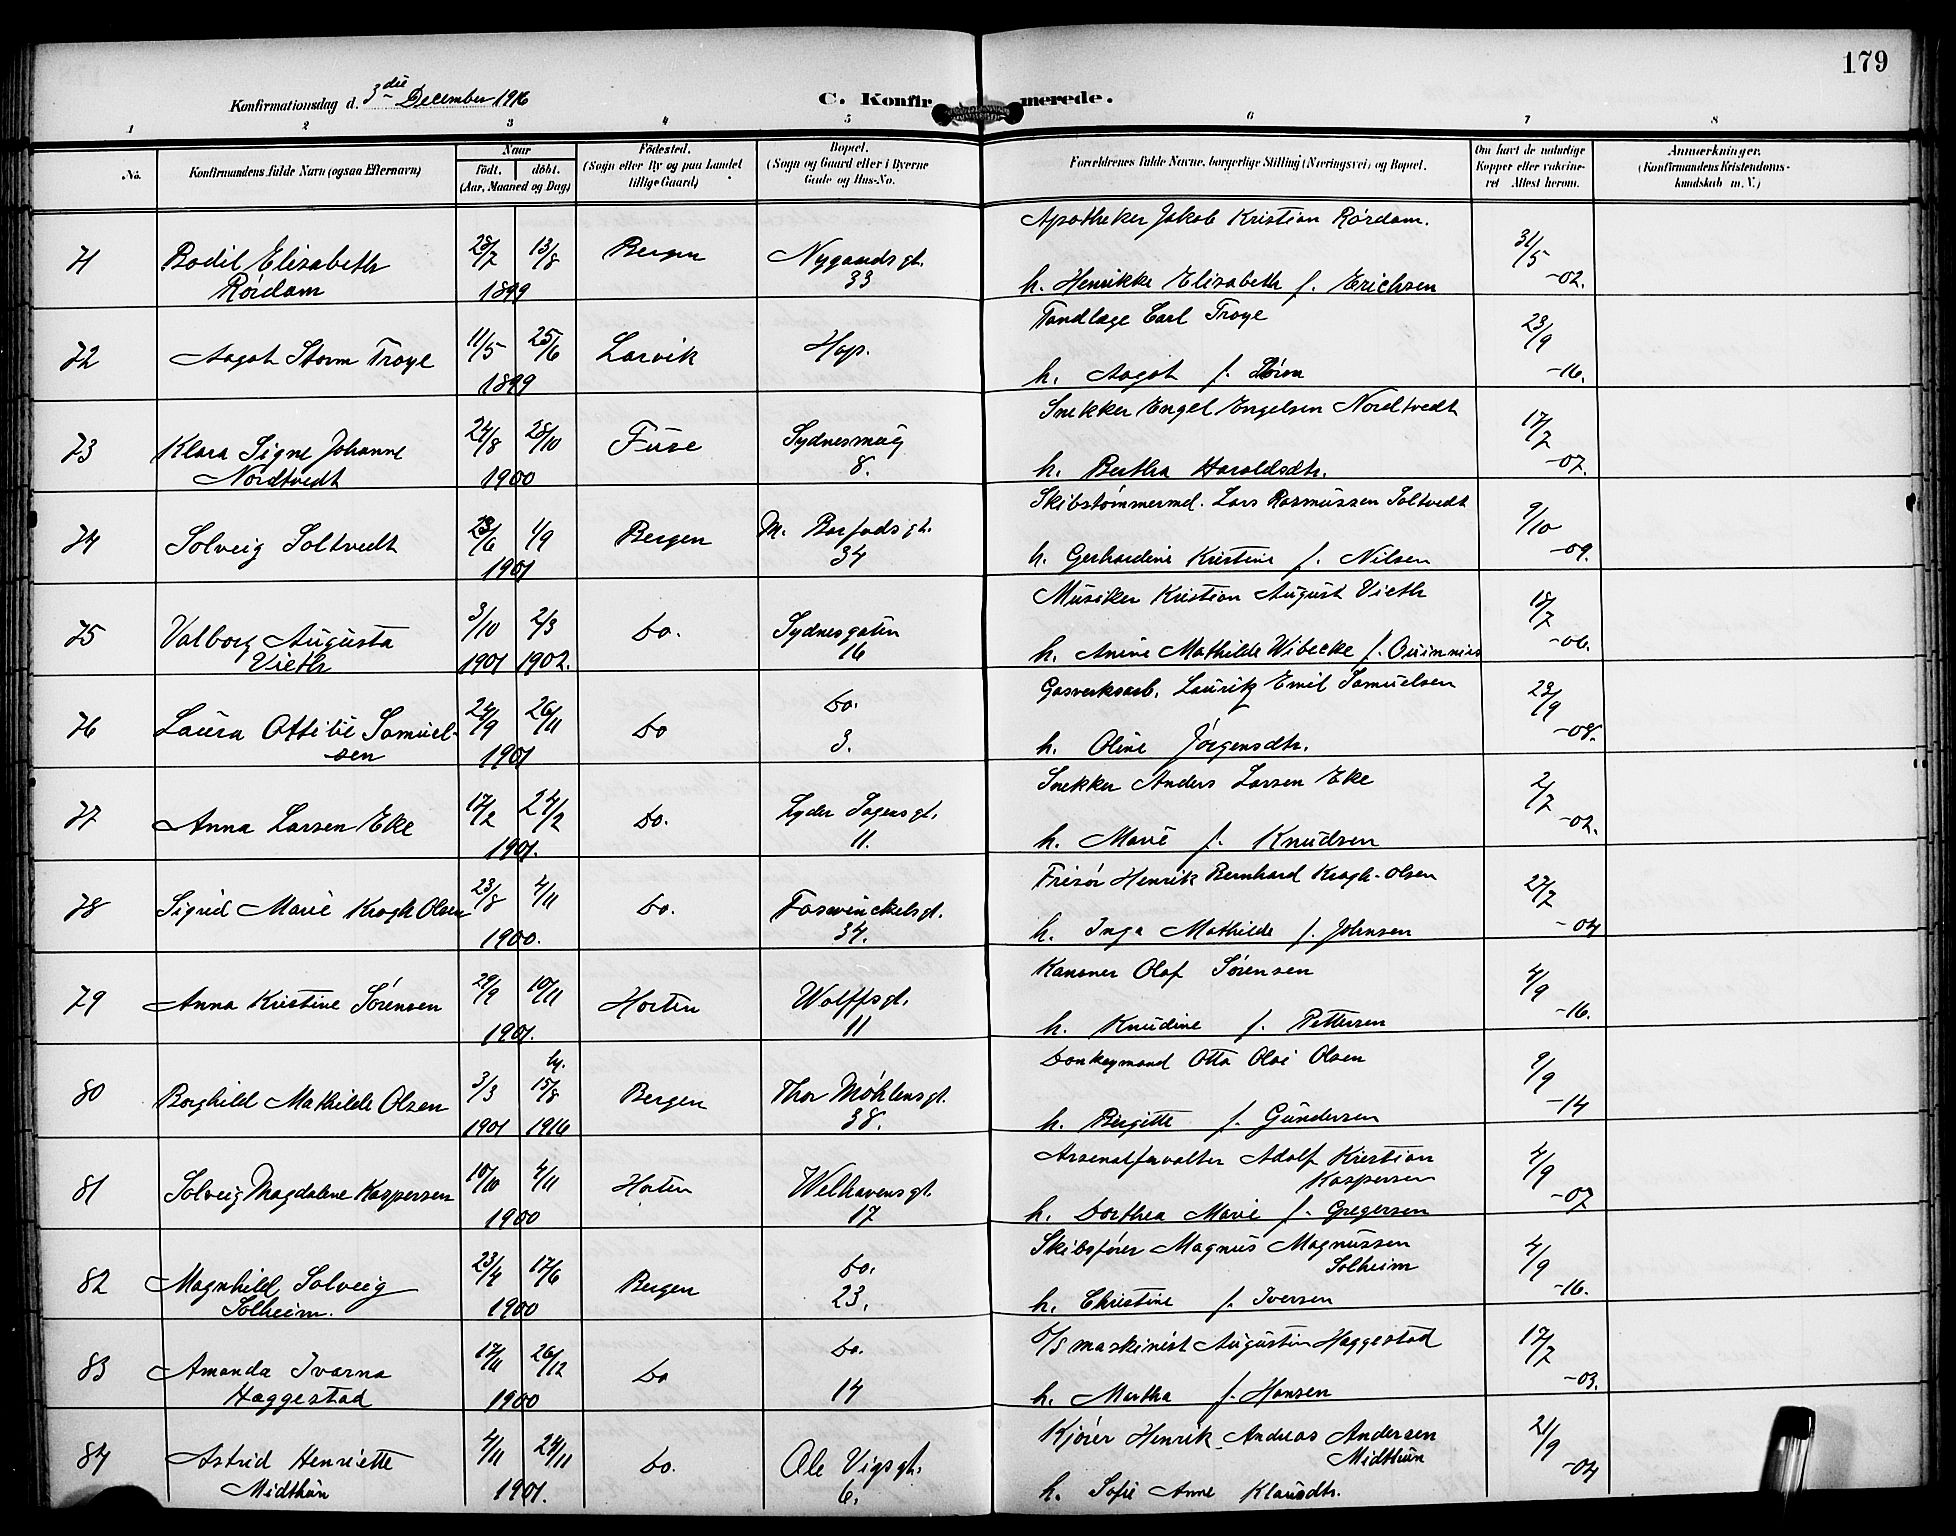 179
Konfirmationsdag d. 3die December 1916
C. Konfirmerede.
1 2 3 4 5 6 7 8
No.
Konfirmandens fulde Navn (ogsaa Efternavn)
Naar
født. døbt.
(Aar, Maaned og Dag)
Fødested.
(Sogn eller By og paa Landet
tillige Gaard)
Bopæl.
(Sogn og Gaard eller i Byerne
Gade og Hus-No.
Forældrenes fulde Navne, borgerlige Stilling (Næringsvei) og Bopæl.
Om havt de naturlige
Kopper eller vakcine-
ret Attest herom.
Anmærkninger.
(Konfirmandens Kristendoms-
kundskab m. V.)
71 Bodil Elisabeth 28/7 13/8 Bergen Nygaardsgt. Apotheker Jakob Kristian Rørdam. 31/5
Rørdam 1899 33 h. Henrikke Elisabeth f. Erichsen -02.
72 Aagot Storm Troye 11/5 25/6 Larvik Hop. Tandlæge Carl Troye 23/9
1899 h. Aagot f. -16.
73 Klara Signe Johanne 24/8 28/10 Fuse Sydnessmug Snekker Engel Engelsen Nordtvedt 17/7
Nordtvedt 1900 8. h. Bertha Haraldsdtr. -07.
74 Solveig Soltvedt 23/6 1/9 Bergen M. Barfodsgt. Skibstømmermd. Lars Rasmussen Soltvedt 9/10
1901 34 h. Gerhardine Kristine f. Nilsen -09.
75 Valborg Augusta 3/10 2/3 do. Sydnesgaten Musiker Kristian August Vieth 18/7
Vieth 1901 1902. 16 h. Anine Mathilde Wibecke f. -06.
76 Laura Ottilie Samuel- 24/9 26/11 do do. Gasverksarb. Lauritz Emil Samuelsen 29/9
sen 1901 3. h. Oline Jørgensdtr. -08.
77 Anna Larsen Eke 17/2 24/2 do. Lyder Sagensgt. Snekker Anders Larsen Eke 2/7
1901. 11. h. Marie f. Knudsen -02.
78 Sigrid Marie Krogh Olsen 23/8 4/11 do. Fosswinckelsgt. Frisør Henrik Bernhard Krogh-Olsen 27/7
1900. 34. h. Inga Mathilde f. Johnsen -04
79 Anna Kristine Sørensen 29/9 10/11 Horten Wolffsgt. Kanoner Olaf Sørensen 4/9
1901. 11 h. Knudine f. Pettersen -16.
80 Borghild Mathilde Olsen 3/3 hj. 15/8 Bergen Thor Møhlensgt. Donkeymand Otto Olai Olsen 9/9
1901 1916 38. h. Birgitte f. Gundersen -14
81 Solveig Magdalene Kaspersen 10/10 4/11 Horten Welhavensgt. Arsenalforvalter Adolf Kristian 4/9
Kaspersen
1900 17 h. Dorthea Marie f. Gregersen -07
82 Magnhild Solveig 23/4 17/6 Bergen do. Skibsfører Magnus Magnussen 4/9
Solheim
Solheim. 1900 23. h. Christine f. Iversen -16.
83 Amanda Ivarna 17/11 26/12 do do. D/S maskinist Augustin Haggestad 17/7
Haggestad 1900 14 h. Martha f. Hansen -03.
84 Astrid Henriette 4/11 24/11 do. Ole Vigsgt. Kjører Henrik Andreas Andersen 21/9
Midthun
Midthun 1901. 6. h. Sofie Anne Klausdtr. -04